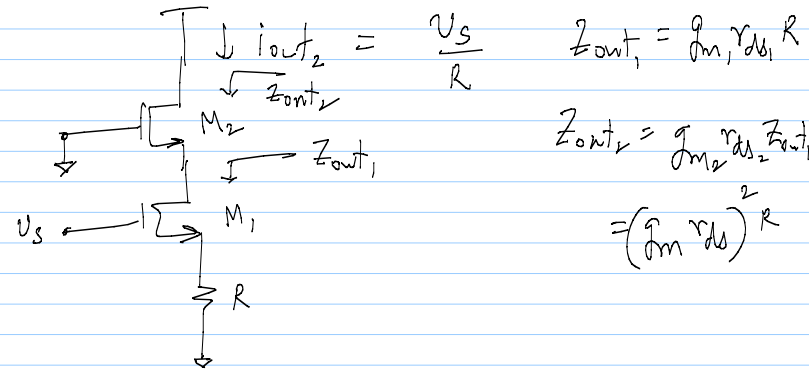 ↓ iout₂ = υs/R
Zout₁ = gm₁rds₁R
Zout₂
M₂
Zout₂ = gm₂rds₂Zout₁
Zout₁
= (gm rds)² R
υs
M₁
R